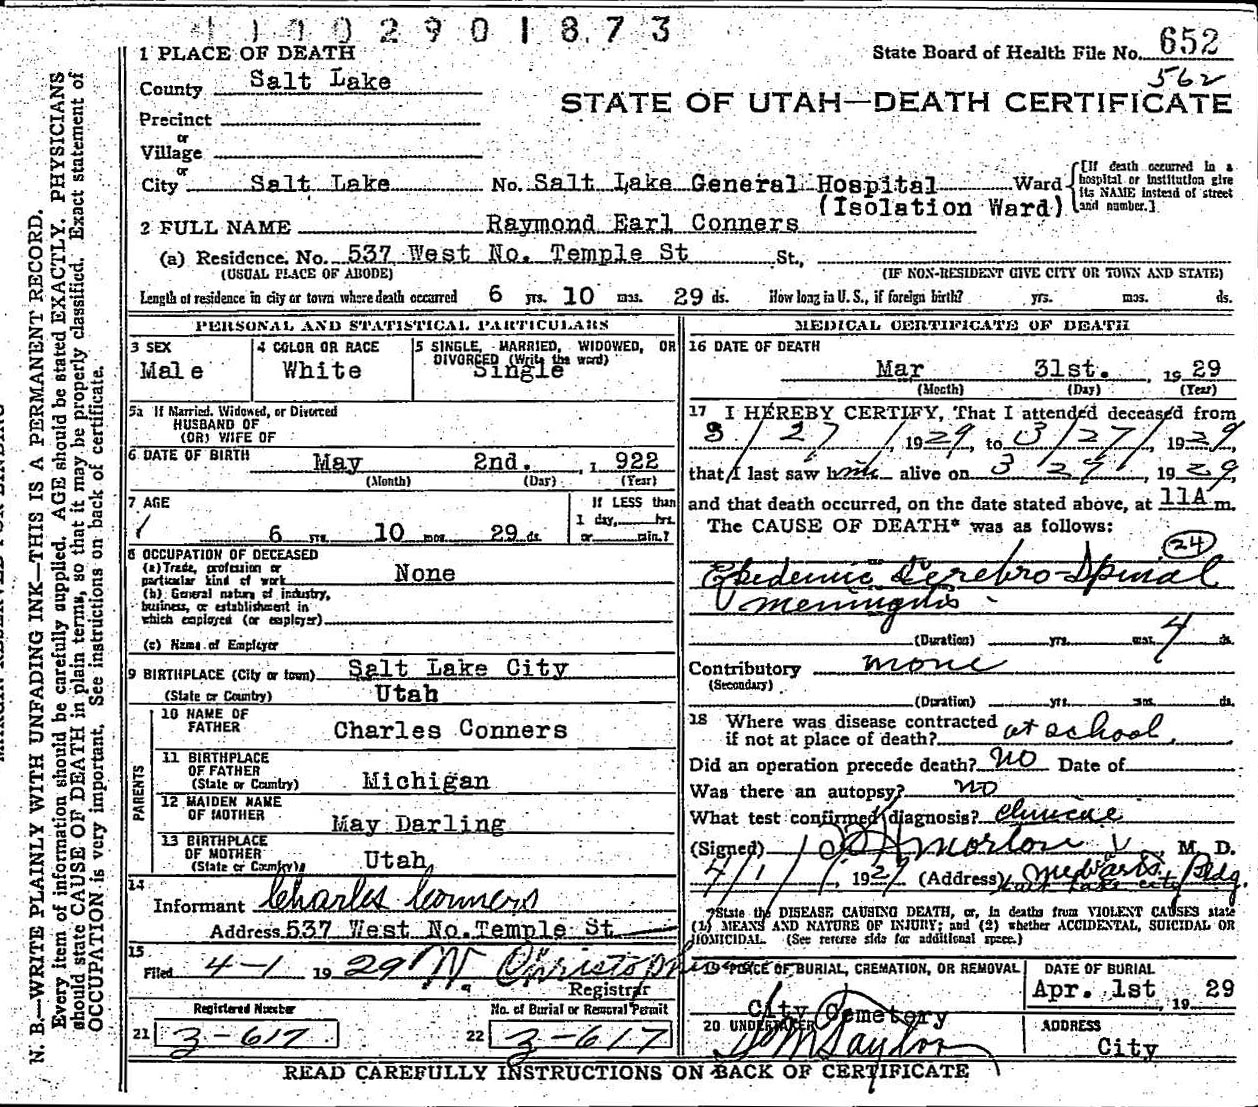 2901873
1 PLACE OF DEATH
State Board of Health File No. 652
562
County Salt Lake
STATE OF UTAH—DEATH CERTIFICATE
Precinct
or
Village
or
City Salt Lake No. Salt Lake General Hospital Ward
(Isolation Ward)
[If death occurred in a
hospital or institution give
its NAME instead of street
and number.]
2 FULL NAME Raymond Earl Conners
(a) Residence. No. 537 West No. Temple St St.,
(USUAL PLACE OF ABODE) (IF NON-RESIDENT GIVE CITY OR TOWN AND STATE)
Length of residence in city or town where death occurred 6 yrs. 10 mos. 29 ds. How long in U. S., if foreign birth? yrs. mos. ds.
PERSONAL AND STATISTICAL PARTICULARS
3 SEX
Male
4 COLOR OR RACE
White
5 SINGLE, MARRIED, WIDOWED, OR
DIVORCED (Write the word)
Single
5a If Married, Widowed, or Divorced
HUSBAND OF
(OR) WIFE OF
6 DATE OF BIRTH
May 2nd. , 1 922
(Month) (Day) (Year)
7 AGE
6 yrs. 10 mos. 29 ds.
If LESS than
1 day, hrs.
or min.?
8 OCCUPATION OF DECEASED
(a) Trade, profession or
particular kind of work None
(b) General nature of industry,
business, or establishment in
which employed (or employer)
(c) Name of Employer
9 BIRTHPLACE (City or town) Salt Lake City
(State or Country) Utah
PARENTS
10 NAME OF
FATHER Charles Conners
11 BIRTHPLACE
OF FATHER
(State or Country) Michigan
12 MAIDEN NAME
OF MOTHER May Darling
13 BIRTHPLACE
OF MOTHER
(State or Country) Utah
14
Informant Charles Conners
Address 537 West No. Temple St
15
Filed 4-1 1929 W. Christopherson
Registrar
Registered Number
21 3-617
No. of Burial or Removal Permit
22 3-617
MEDICAL CERTIFICATE OF DEATH
16 DATE OF DEATH
Mar 31st. , 19 29
(Month) (Day) (Year)
17 I HEREBY CERTIFY, That I attended deceased from
3/27/, 1929, to 3/27/, 1929,
that I last saw him alive on 3 29, 1929,
and that death occurred, on the date stated above, at 11A m.
The CAUSE OF DEATH* was as follows:
24
Epedemic Cerebro-Spinal
Meningitis
(Duration) yrs. mos. 4 ds.
Contributory none
(Secondary)
(Duration) yrs. mos. ds.
18 Where was disease contracted
if not at place of death? at school
Did an operation precede death? NO Date of
Was there an autopsy? NO
What test confirmed diagnosis? clinical
(Signed) Morton M. D.
4/1/, 1929 (Address) Bldg.
*State the DISEASE CAUSING DEATH, or, in deaths from VIOLENT CAUSES state
(1) MEANS AND NATURE OF INJURY; and (2) whether ACCIDENTAL, SUICIDAL OR
HOMICIDAL. (See reverse side for additional space.)
19 PLACE OF BURIAL, CREMATION, OR REMOVAL
City Cemetery
DATE OF BURIAL
Apr. 1st , 19 29
20 UNDERTAKER
S M Taylor
ADDRESS
City
READ CAREFULLY INSTRUCTIONS ON BACK OF CERTIFICATE
N. B.—WRITE PLAINLY WITH UNFADING INK—THIS IS A PERMANENT RECORD.
Every item of information should be carefully supplied. AGE should be stated EXACTLY. PHYSICIANS
should state CAUSE OF DEATH in plain terms, so that it may be properly classified. Exact statement of
OCCUPATION is very important. See instructions on back of certificate.